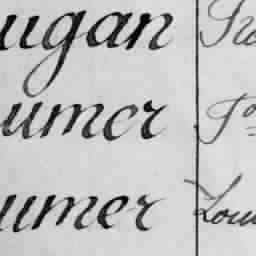 ugan
umer Jo=
umer Lou